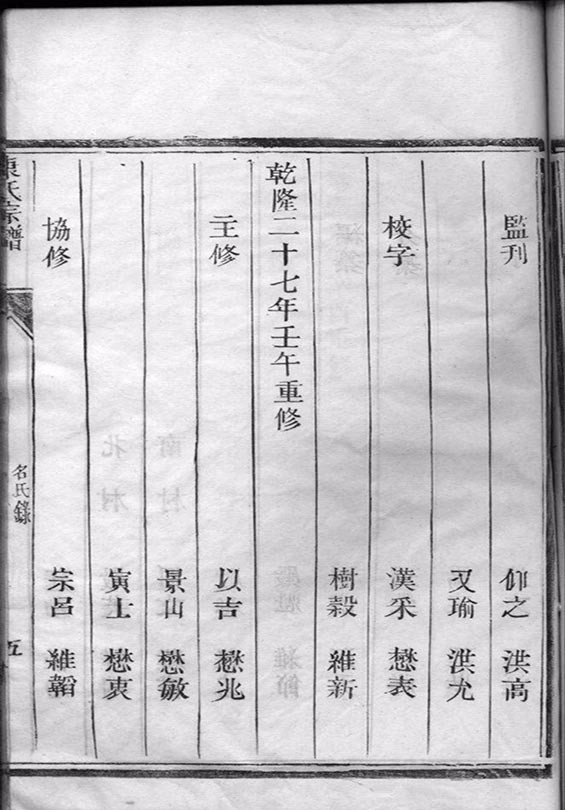 監刊 仰之 洪高
又瑜 洪允
校字 漢采 懋表
樹穀 維新
乾隆二十七年壬午重修
主修 以吉 懋兆
景山 懋敏
寅士 懋衷
協修 宗呂 維韜
康氏宗譜 名氏錄 五